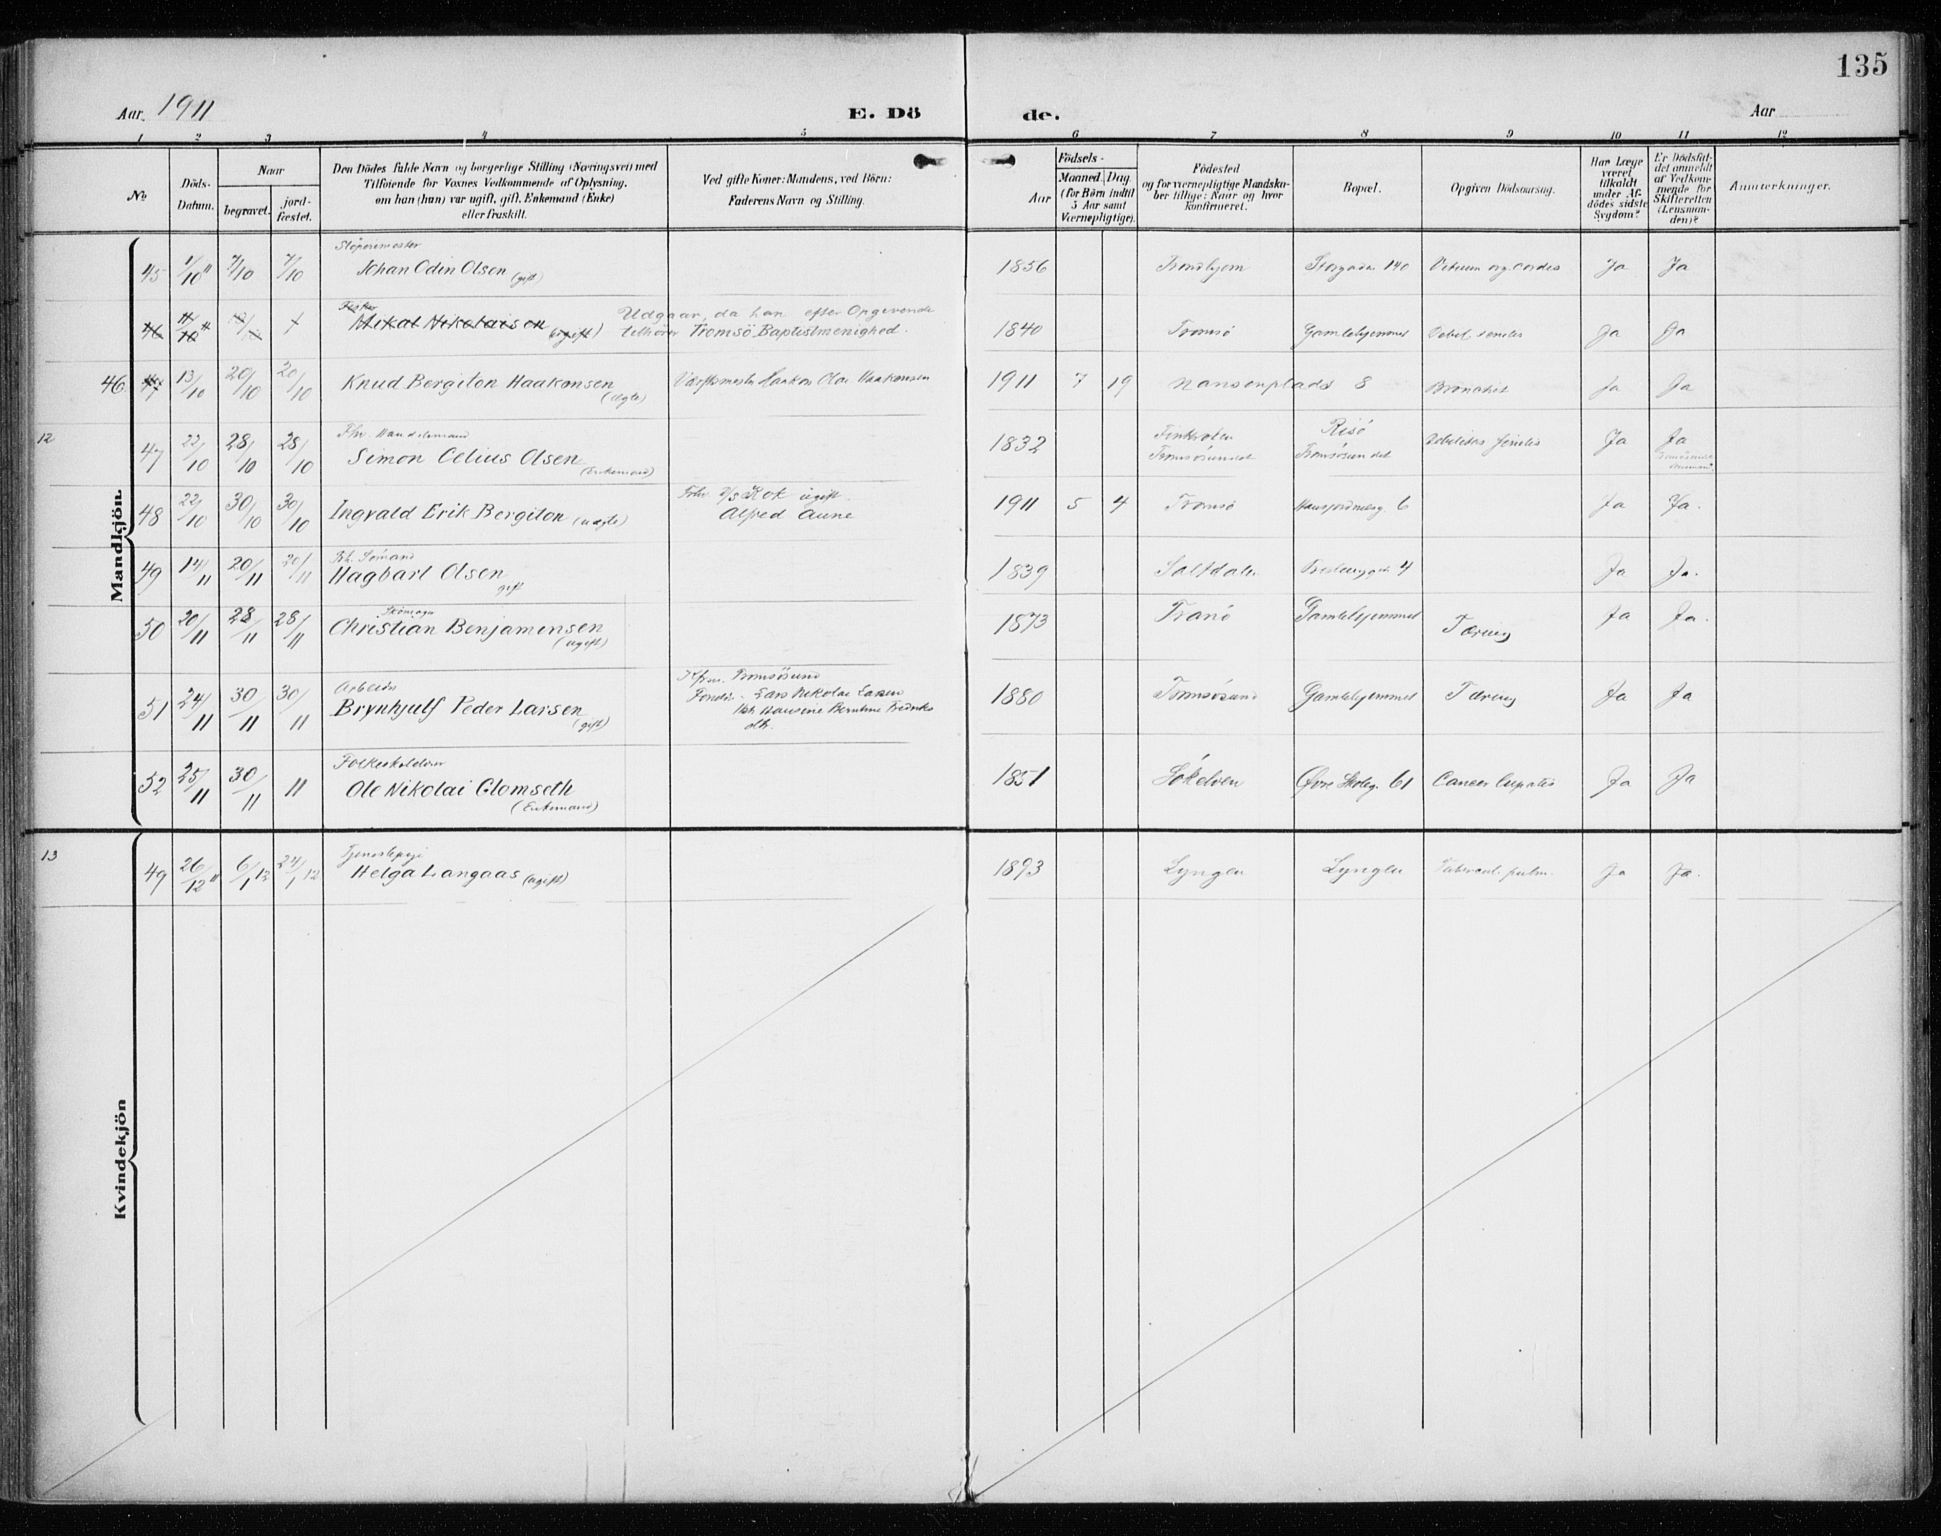 135
Aar 1911 E. Dö de. Aar
1 2 3 4 5 6 7 8 9 10 11 12
No. Döds-Datum. Naar begravet. jordfæstet. Den Dödes fulde Navn og borgerlige Stilling (Næringsvei) med Tilföiende for Voxnes Vedkommende af Oplysning, om han (hun) var ugift, gift, Enkemand (Enke) eller fraskilt. Ved gifte Koner: Mandens, ved Börn: Faderens Navn og Stilling. Födsels- Aar Maaned. Dag. (for Börn indtil 5 Aar samt Værnepligtige). Födested og for værnepligtige Mandskaber tillige: Naar og hvor konfirmeret. Bopæl. Opgiven Dödsaarsag. Har Læge været tilkaldt under Afdödes sidste Sygdom? Er Dödsfaldet anmeldt af Vedkommende for Skifteretten (Lensmanden)? Anmærkninger.
Mandkjön.
Støperemester
45 1/10 11 7/10 7/10 Johan Odin Olsen (gift) 1856 Trondhjem Storgaden 140 Vitium org. cordis Ja Ja
Fisker
46 11/10 11 Mikal Nikolaisen (ugift) Udgaar, da han efter Opgivende
tilhører Tromsö Baptistmenighed. 1840 Tromsö Gamlehjemmet Debil. senilis Ja Ja
46 47 13/10 20/10 20/10 Knud Bergiton Haakonsen (ægte) Haakon Olai Haakonsen 1911 7 19 Nansenplads 8 Bronchit Ja Ja
12 Fhv. Handelsmand
47 22/10 28/10 28/10 Simon Celius Olsen (Enkemand) 1832 Finkroken Tromsösundet Risö Tromsösundet Debilitas senilis Ja Ja
48 22/10 30/10 30/10 Ingvald Erik Bergiton (uægte) Fhv. D/S Kok ugift
Alfred Aune 1911 5 4 Tromsö 6 Ja Ja.
Fh. Sømand
49 14/11 20/11 20/11 Hagbart Olsen gift 1839 Saltdalen 4 Ja Ja.
50 20/11 28/11 28/11 Christian Benjaminsen (ugift) 1873 Tranö Gamlehjemmet Tæring Ja Ja.
Arbeider
51 24/11 30/11 30/11 Brynhjulf Peder Larsen (gift) Tromsösund
Lars Nikolai Larsen
1880 Tromsösund Gamlehjemmet Tæring Ja Ja
Folkeskolelærer
52 25/11 30/11 11 Ole Nikolai Glomseth (Enkemand) 1851 Sökelven Øvre Skoleg. 61 Cancer Ja Ja
Kvindekjön
13 Tjenestepige
49 26/12 11 6/1 12 24/1 12 Helga Langaas (ugift) 1893 Lyngen Lyngen Tubercul. pulm. Ja Ja.